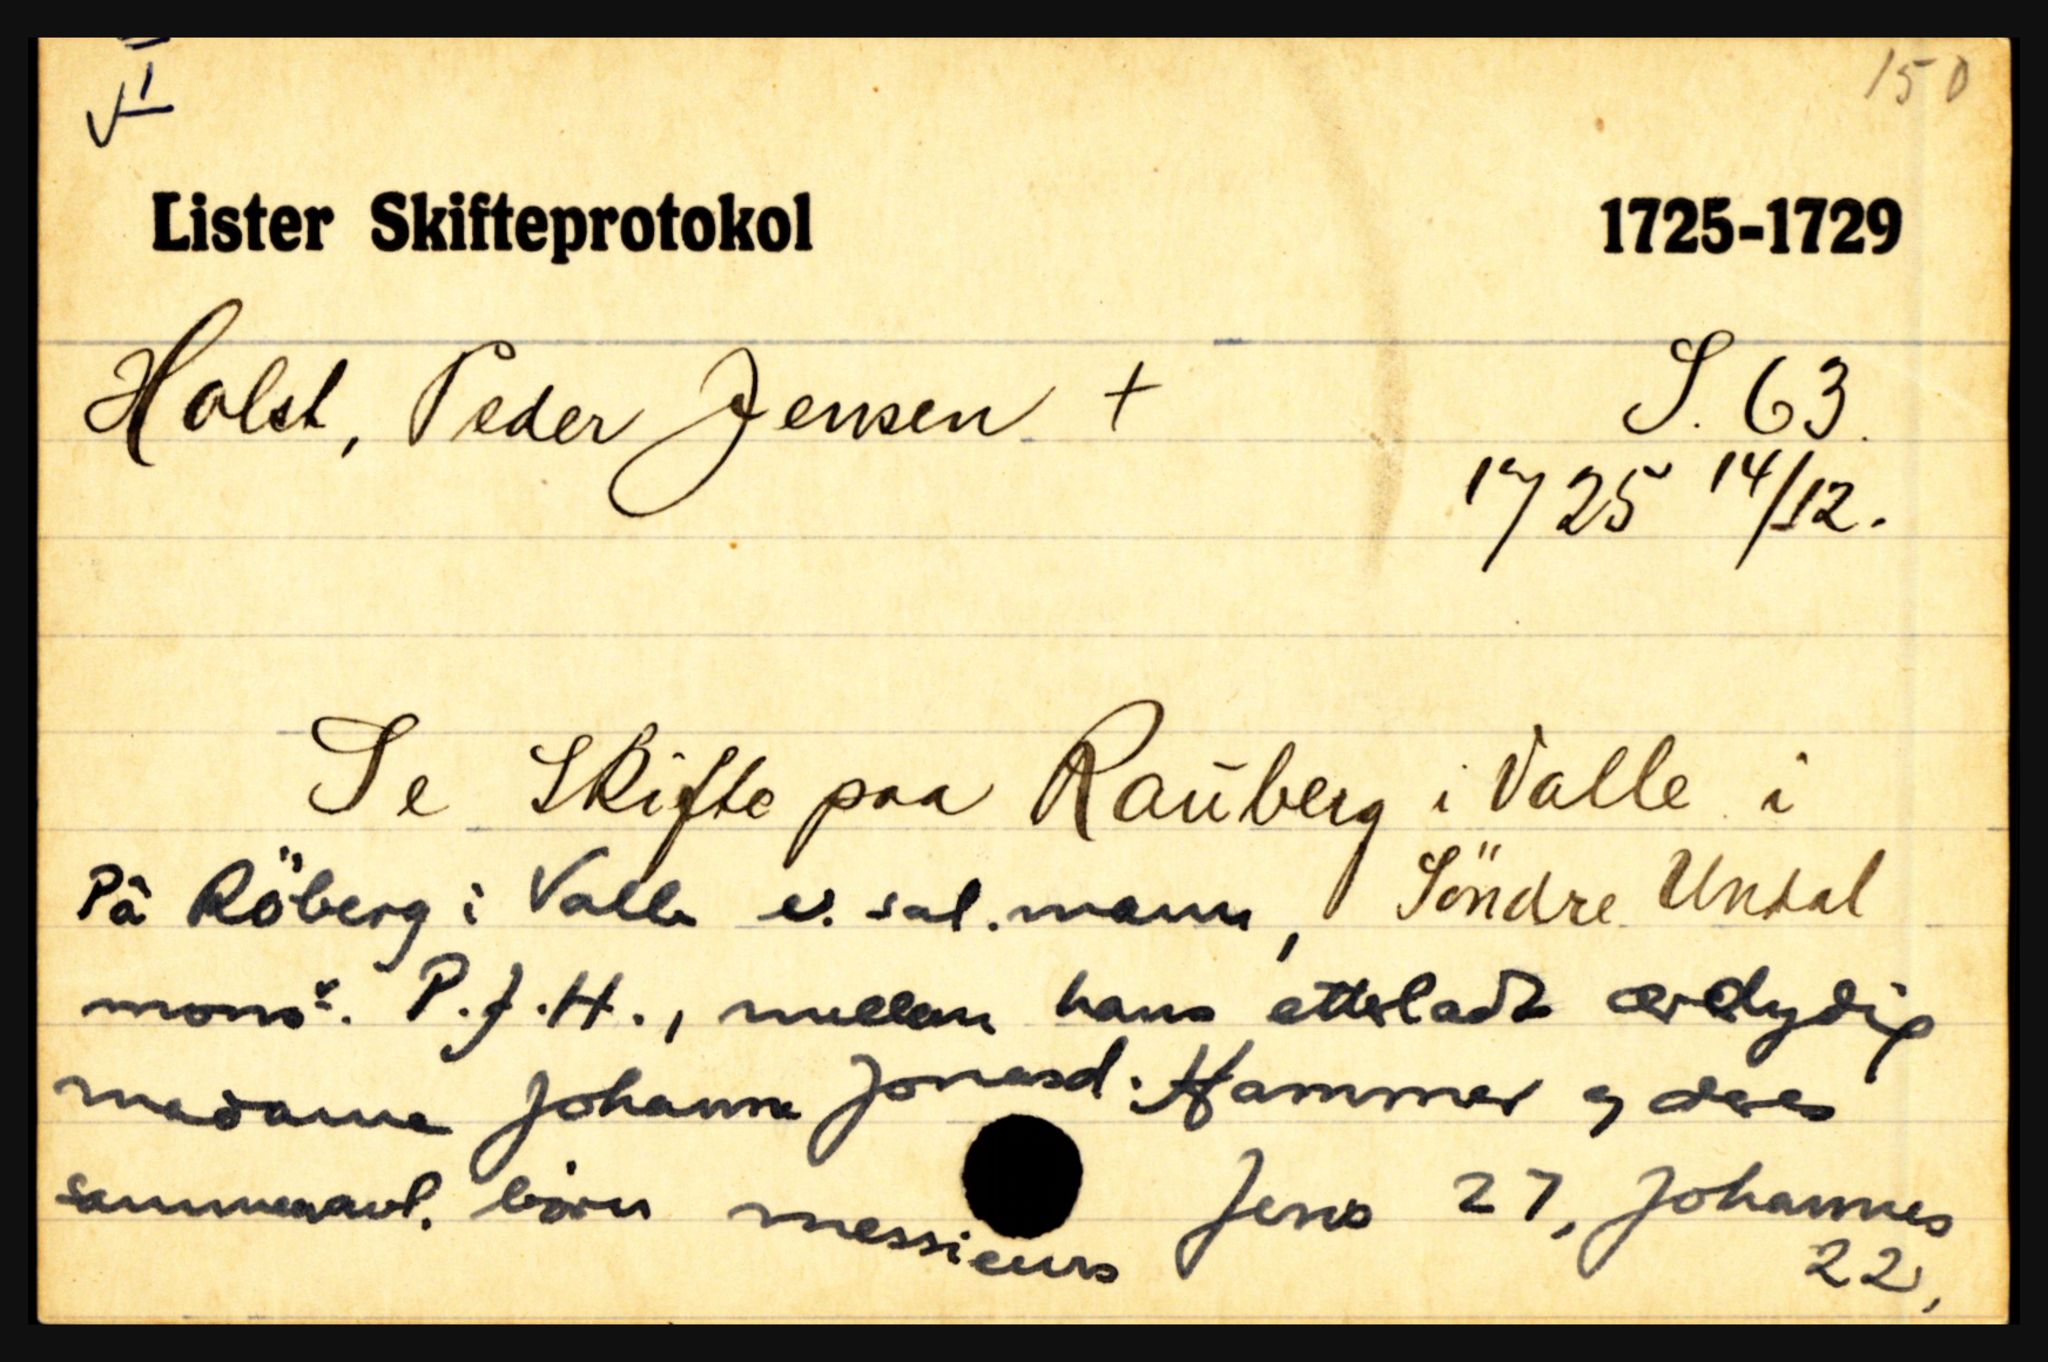 VI
150
Lister Skifteprotokol 1725-1729
Holst, Peder Jensen + S. 63.
1725 14/12.
Se Skifte paa Raŭberg i Valle i
Söndre Undal
På Röberg i Valle e. sal. mann,
monsr. P.J.H., mellem hans etterladte ærdydig
madame Johanna Jonasd. Hammer og deres
sammenavl. børn messieurs Jens 27, Johannes
22,